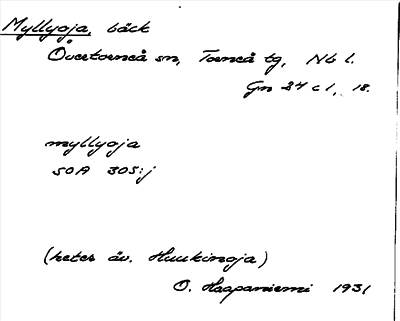 Myllyoja, bäck
Övertorneå sn, Torneå tg, Nb l.
Gn 24 c 1, 18.
myllyoja
SOA 305:j
(heter äv. Huukinoja)
O. Haapaniemi 1931